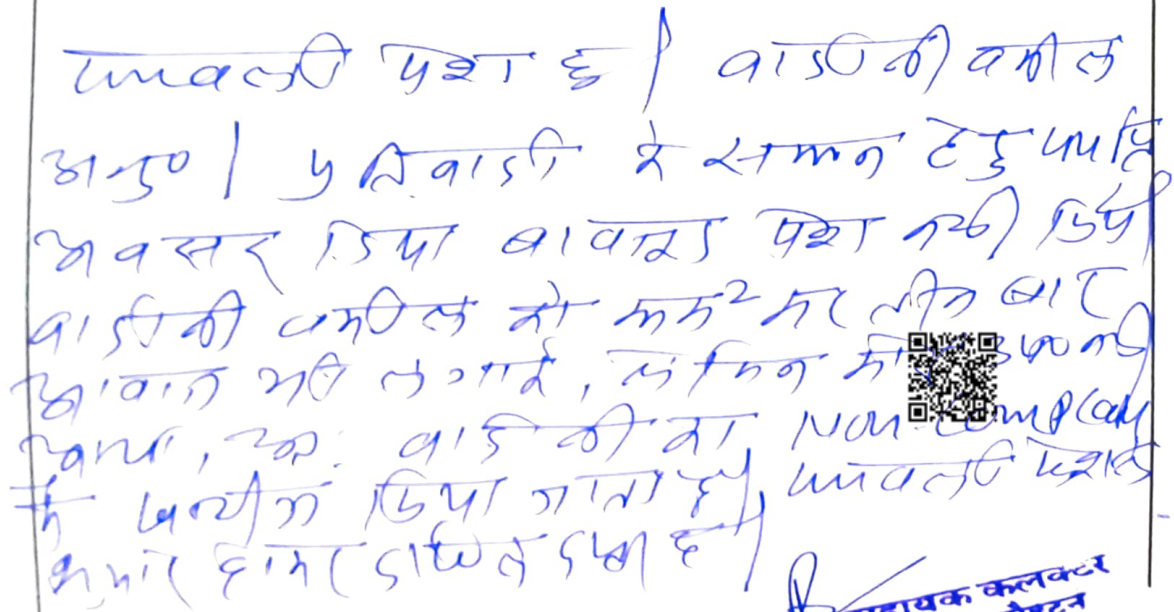 पत्रावली पेश हुई। वादी की वकील
अनु०। प्रतिवादी के सम्मन हेतु पर्याप्त
अवसर दिया बावजूद पेश नहीं किये
वादी की वकील को समय २ पर तीन बार
आवाज भी लगाई, लेकिन कोई नहीं
आया, अतः वादी का Non-
में खारीज किया जाता है। पत्रावली फैशल
शुमार होकर दाखिल दफ्तर हो।
सहायक कलक्टर